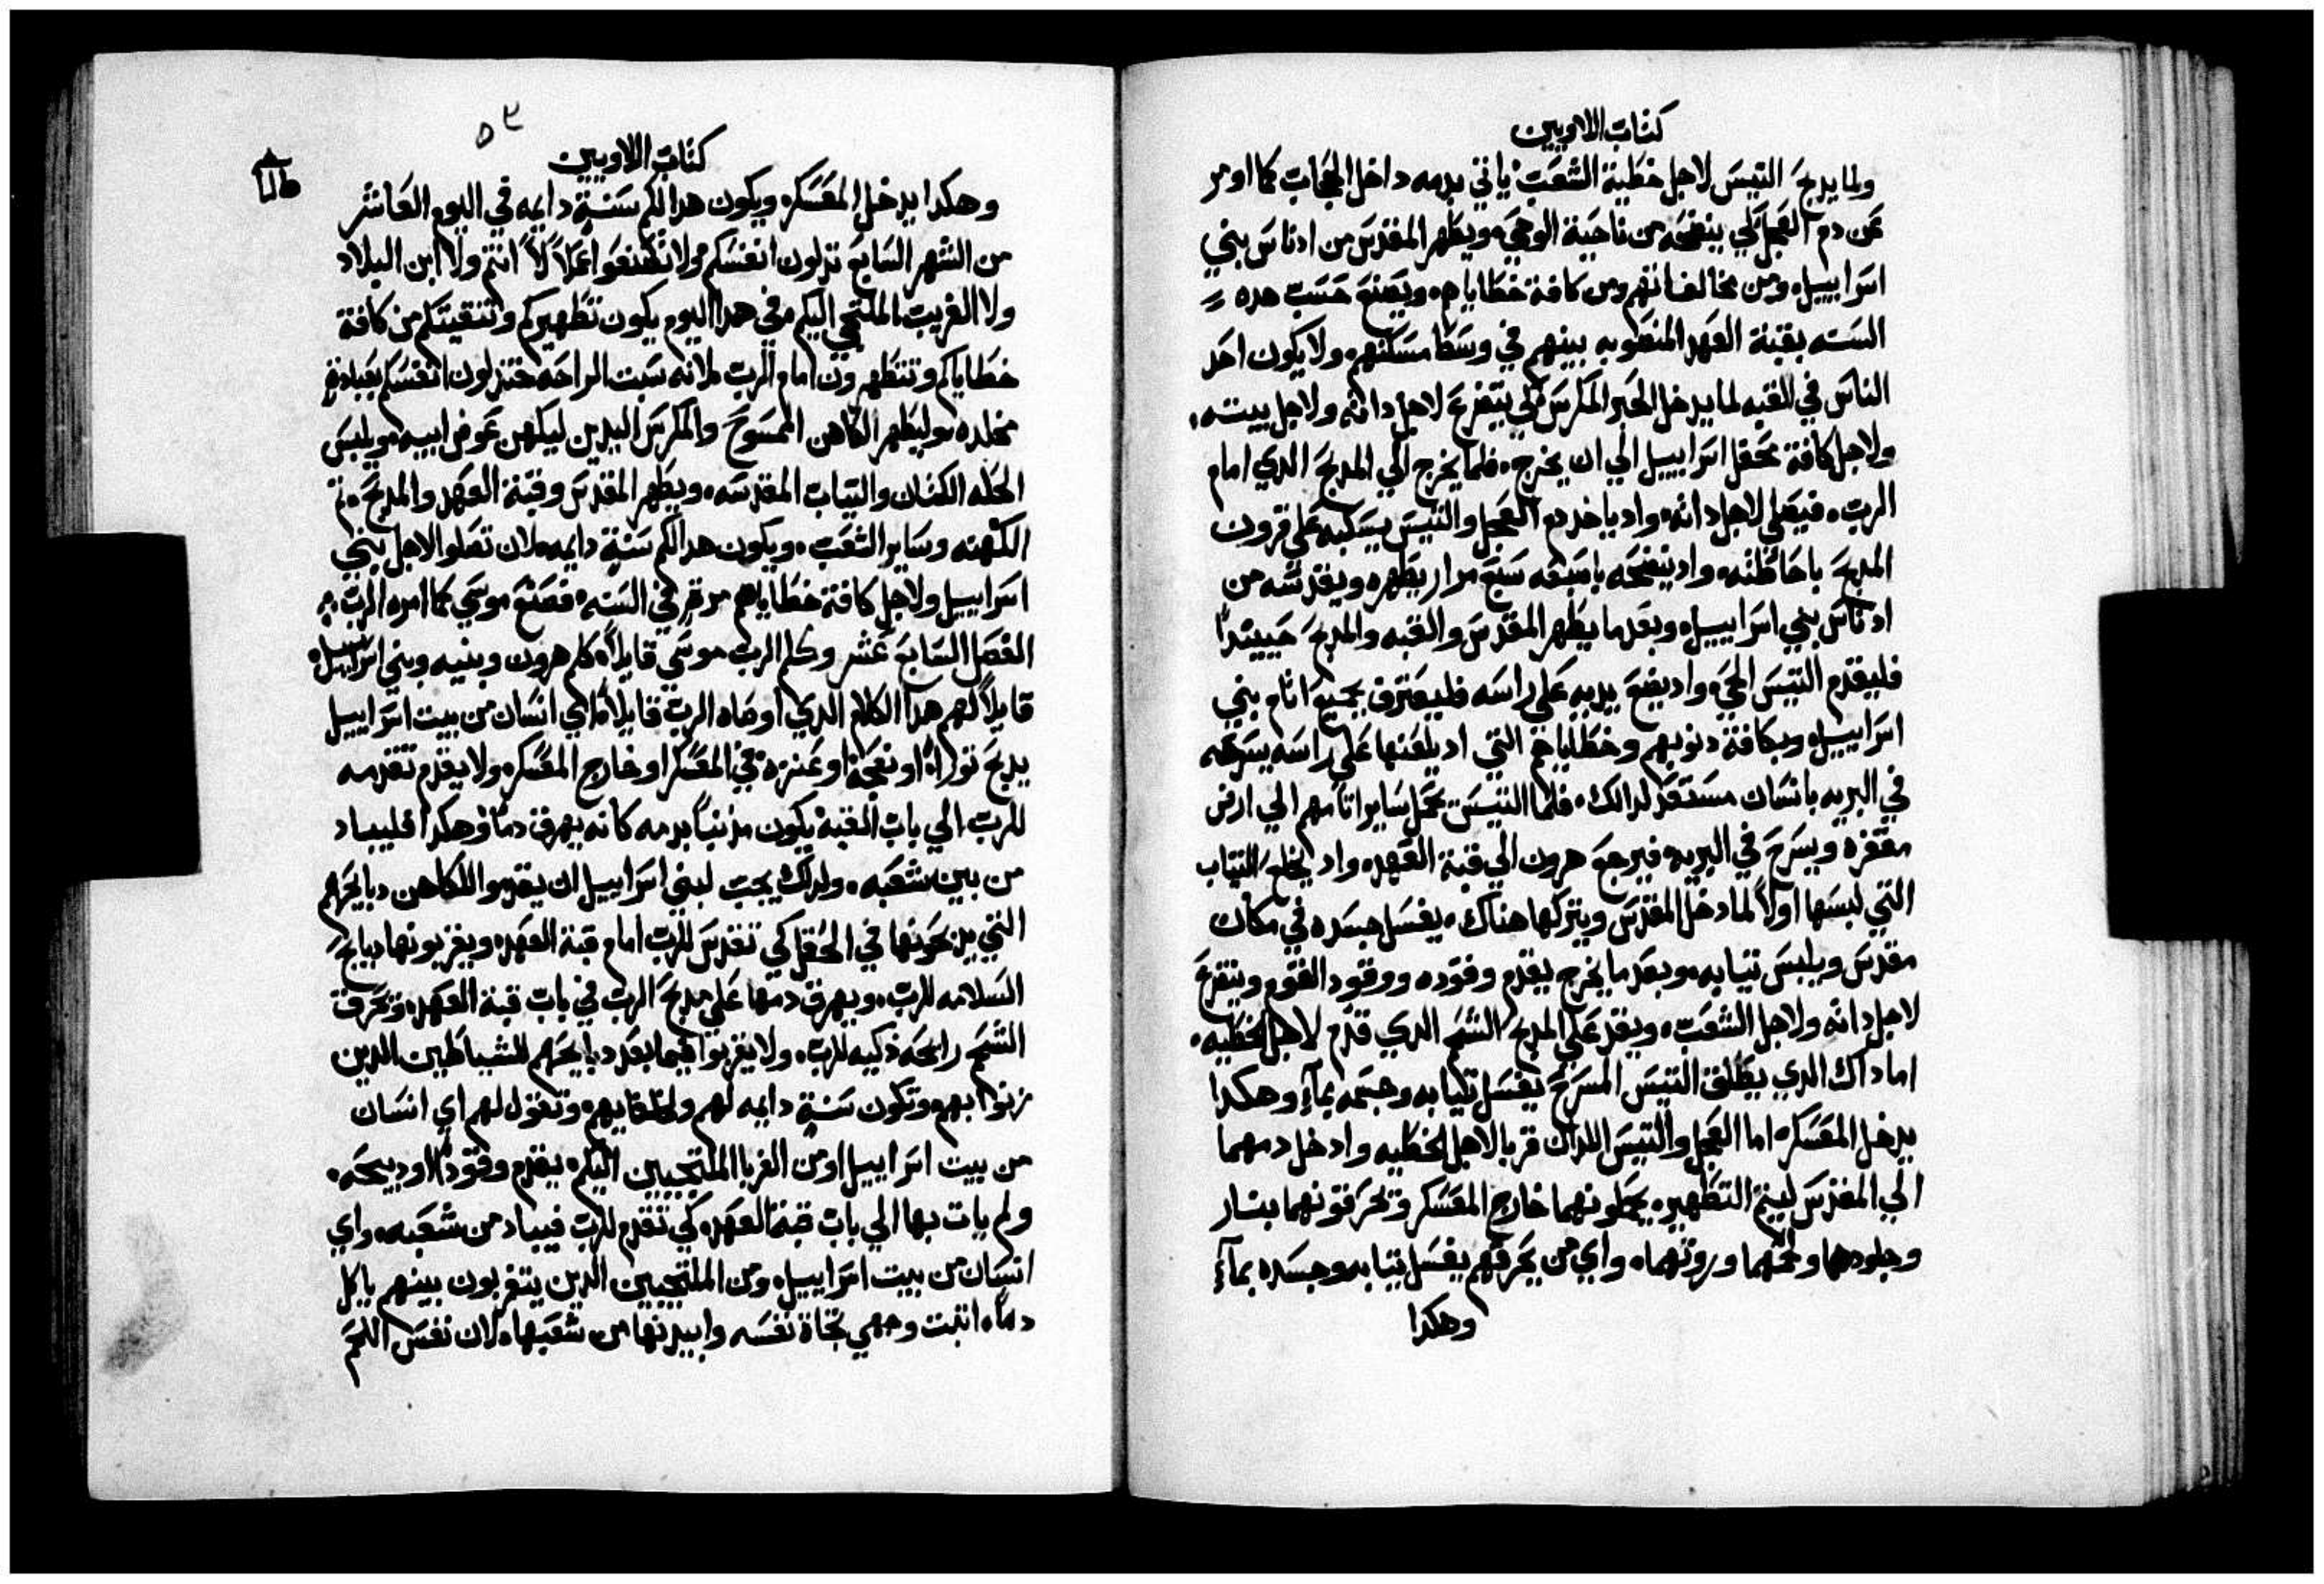 كتاب اللاويين
ولما يدبح التيس لاجل خطية الشعب ياتي بدمه داخل الحجاب كما اومر
عن دم العجل لكي ينضحه من ناحية الوحي ويطهر المقدس من ادناس بني
اسراييل ومن مخالفاتهم ومن كافة خطاياهم ويصنع حسب هده
السنه بقبة العهد المنصوبه بينهم في وسط مسكنهم ولا يكون احد
الناس في القبه لما يدخل الحبر المكرس لكي يتضرع لاجل داته ولاجل بيته
ولاجل كافة محفل اسراييل الي ان يخرج فلما يخرج الي المدبح الدي امام
الرب فيصلي لاجل داته واد ياخد دم العجل والتيس يسكبه علي قرون
المدبح باحاطته واد ينضحه باصبعه سبع مرار يطهره ويقدسه من
ادناس بني اسراييل وبعد ما يطهر المقدس والقبه والمدبح حينيداً
فليقدم التيس الحي واد يضع يديه علي راسه فليعترف بجميع اتام بني
اسراييل وبكافة دنوبهم وخطاياهم التي اد يلعنها علي راسه يسرحه
في البريه بانسان مستعد لدالك فلما التيس يحمل ساير اتامهم الي ارض
مقفره ويسرح في البريه فيرجع هرون الي قبة العهد واد يخلع التياب
التي لبسها اولاً لما دخل المقدس ويتركها هناك يغسل جسده في مكان
مقدس ويلبس تيابه وبعد ما يخرج يقدم وقوده ووقود القوم ويتضرع
لاجل داته ولاجل الشعب ويقد علي المدبح الشحم الدي قدم لاجل الخطيه
اما داك الدي يطلق التيس المسرح يغسل تيابه وجسمه بمآءٍ وهكدا
يدخل المعسكر اما العجل والتيس اللدان قربا لاجل الخطيه وادخل دمهما
الي المقدس ليتم التطهير يحملونهما خارج المعسكر وتحرقونهما بنار
وجلودهما ولحمهما وروتهما واي من يحرقهم يغسل تيابه وجسده بمآءٍ
وهكدا
٥٢
كتاب اللاويين
وهكدا يدخل المعسكر ويكون هدا لكم سنةٍ دايمه في اليوم العاشر
من الشهر السابع تدلون انفسكم ولا تصنعوا عملاً لا انتم ولا ابن البلاد
ولا الغريب الملتجي اليكم وفي هدا اليوم يكون تطهيركم وتنقيتكم من كافة
خطاياكم وتتطهرون امام الرب لانه سبت الراحه فتدلون انفسكم بعبادةٍ
مخلده وليطهر الكاهن الممسوح والمكرس اليدين ليكهن عوض ابيه ويلبس
الحله الكتان والتياب المقدسه ويطهر المقدس وقبة العهد والمدبح تم
الكهنه وساير الشعب ويكون هدا لكم سنةٍ دايمه لان تصلوا لاجل بني
اسراييل ولاجل كافة خطاياهم مرةٍ في السنه فصنع موسي كما امره الرب
الفصل السابع عشر وكلم الرب موسي قايلاً كلم هرون وبنيه وبني اسراييل
قايلاً لهم هدا الكلام الدي اوصاه الرب قايلاً اي انسان من بيت اسراييل
يدبح توراً او نعجةً او عنزه في المعسكر او خارج المعسكر ولا يقدم تقدمه
للرب الي باب القبة يكون مدنباً بدمه كانه يهرق دماً وهكدا فليباد
من بين شعبه ولدلك يجب لبني اسراييل ان يقدموا للكاهن دبايحهم
التي يدبحونها في الحقل كي تقدس للرب امام قبة العهد ويقربونها دبايح
السلامه للرب ويهرق دمها علي مدبح الرب في باب قبة العهد وتحرق
الشحم رايحه دكيه للرب ولا يقربوا فيما بعد دبايحهم للشياطين الدين
زنوا بهم وتكون سنةٍ دايمه لهم ولاعقابهم وتقول لهم اي انسان
من بيت اسراييل او من الغربا الملتجيين اليكم يقدم وقوداً او دبيحه
ولم يات بها الي باب قبة العهد كي تقدم للرب فيباد من شعبه واي
انسان من بيت اسراييل ومن الملتجيين الدين يتغربون بينهم ياكل
دماً اتبت وجهي تجاة نفسه وابيدنها من شعبها لان نفس اللحم